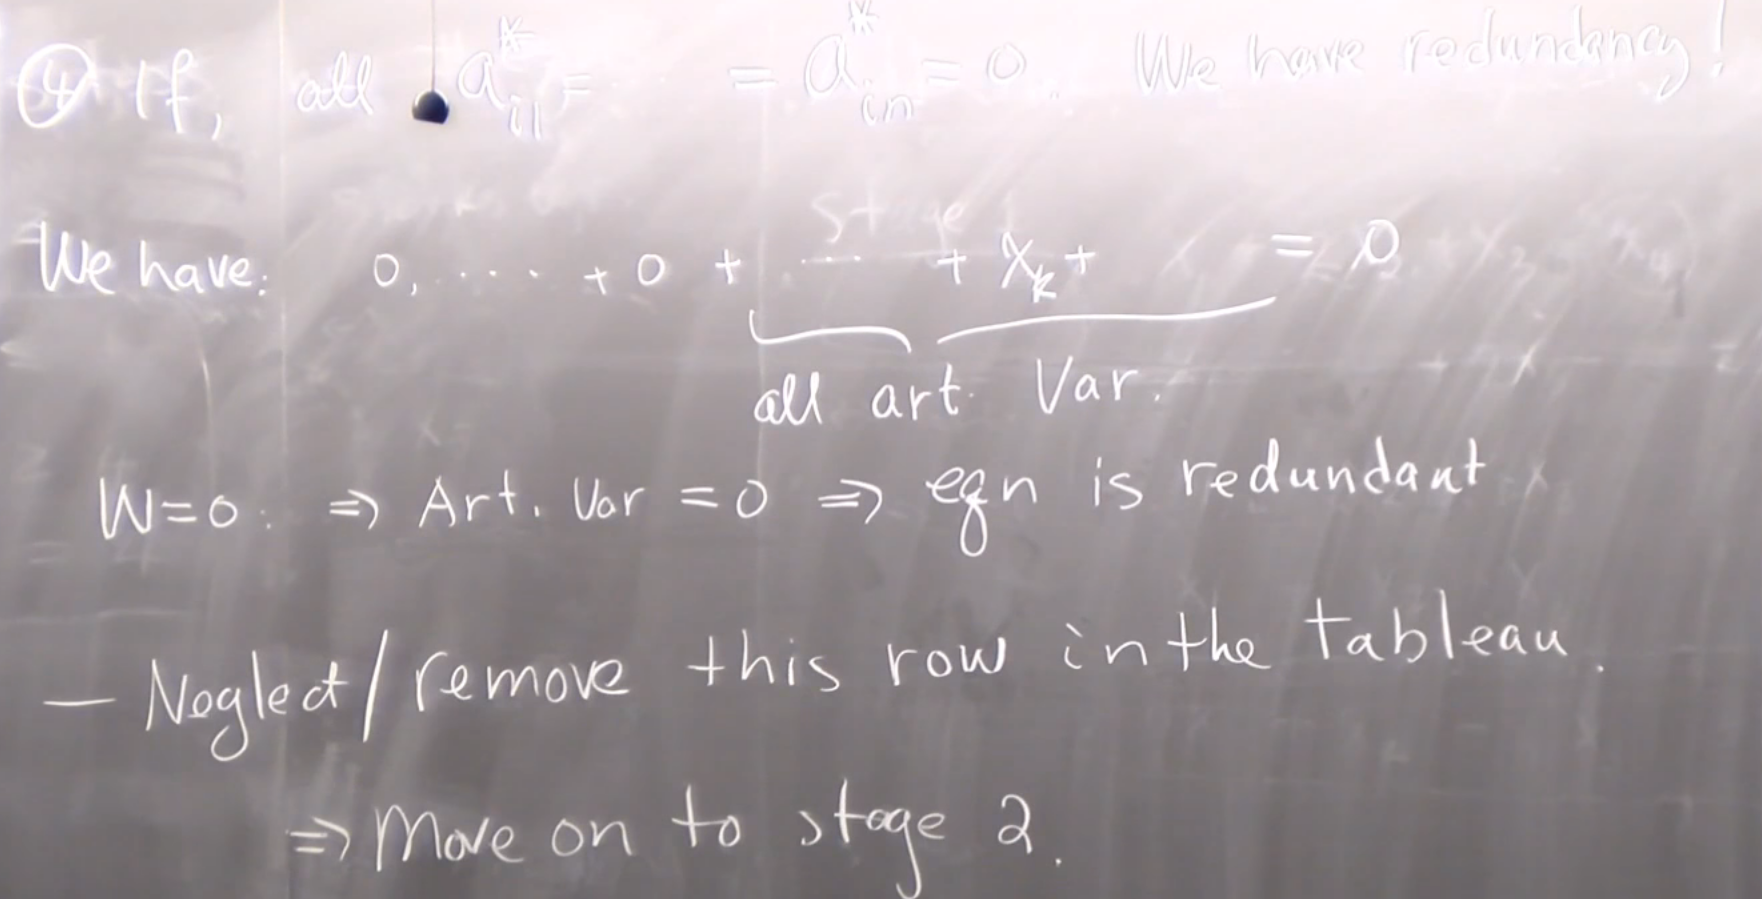 ④ If, all a*i1 = = a*in = 0. We have redundancy!
stage
We have: 0, .... + 0 + .... + Xk + = 0
all art. Var.
W=0. ⇒ Art. Var = 0 ⇒ eqn is redundant
— Neglect/remove this row in the tableau.
⇒ Move on to stage 2.